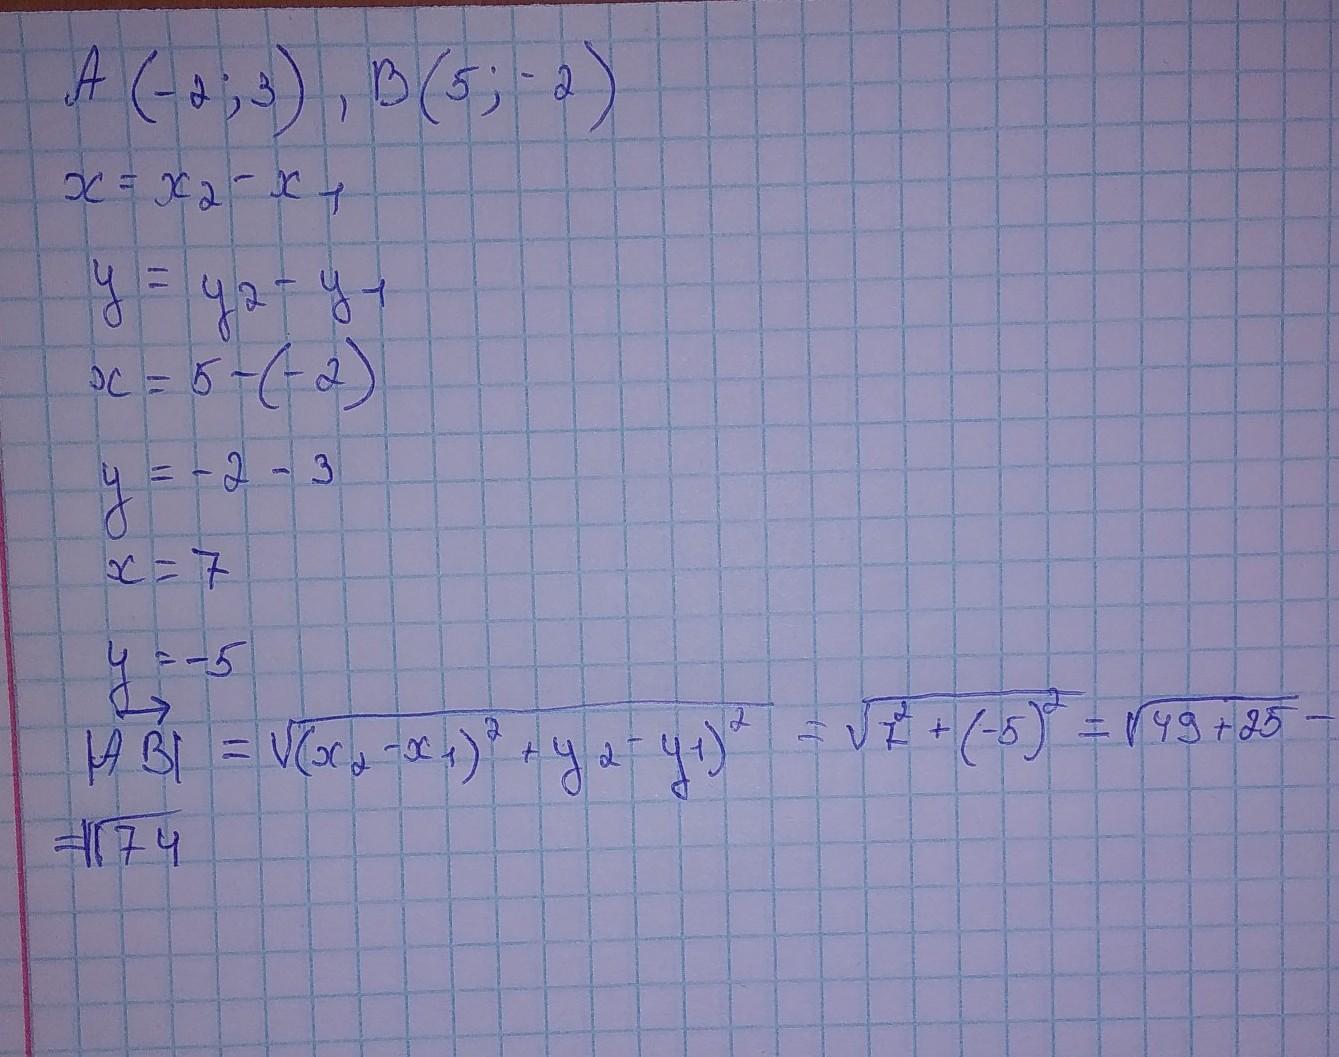 A (-2; 3), B(5; -2)
x = x₂ - x₁
y = y₂ - y₁
x = 5 - (-2)
y = -2 - 3
x = 7
y = -5
|A⃗B⃗| = √((x₂ - x₁)² + y₂ - y₁)² = √(7² + (-5)²) = √(49 + 25) =
= √74